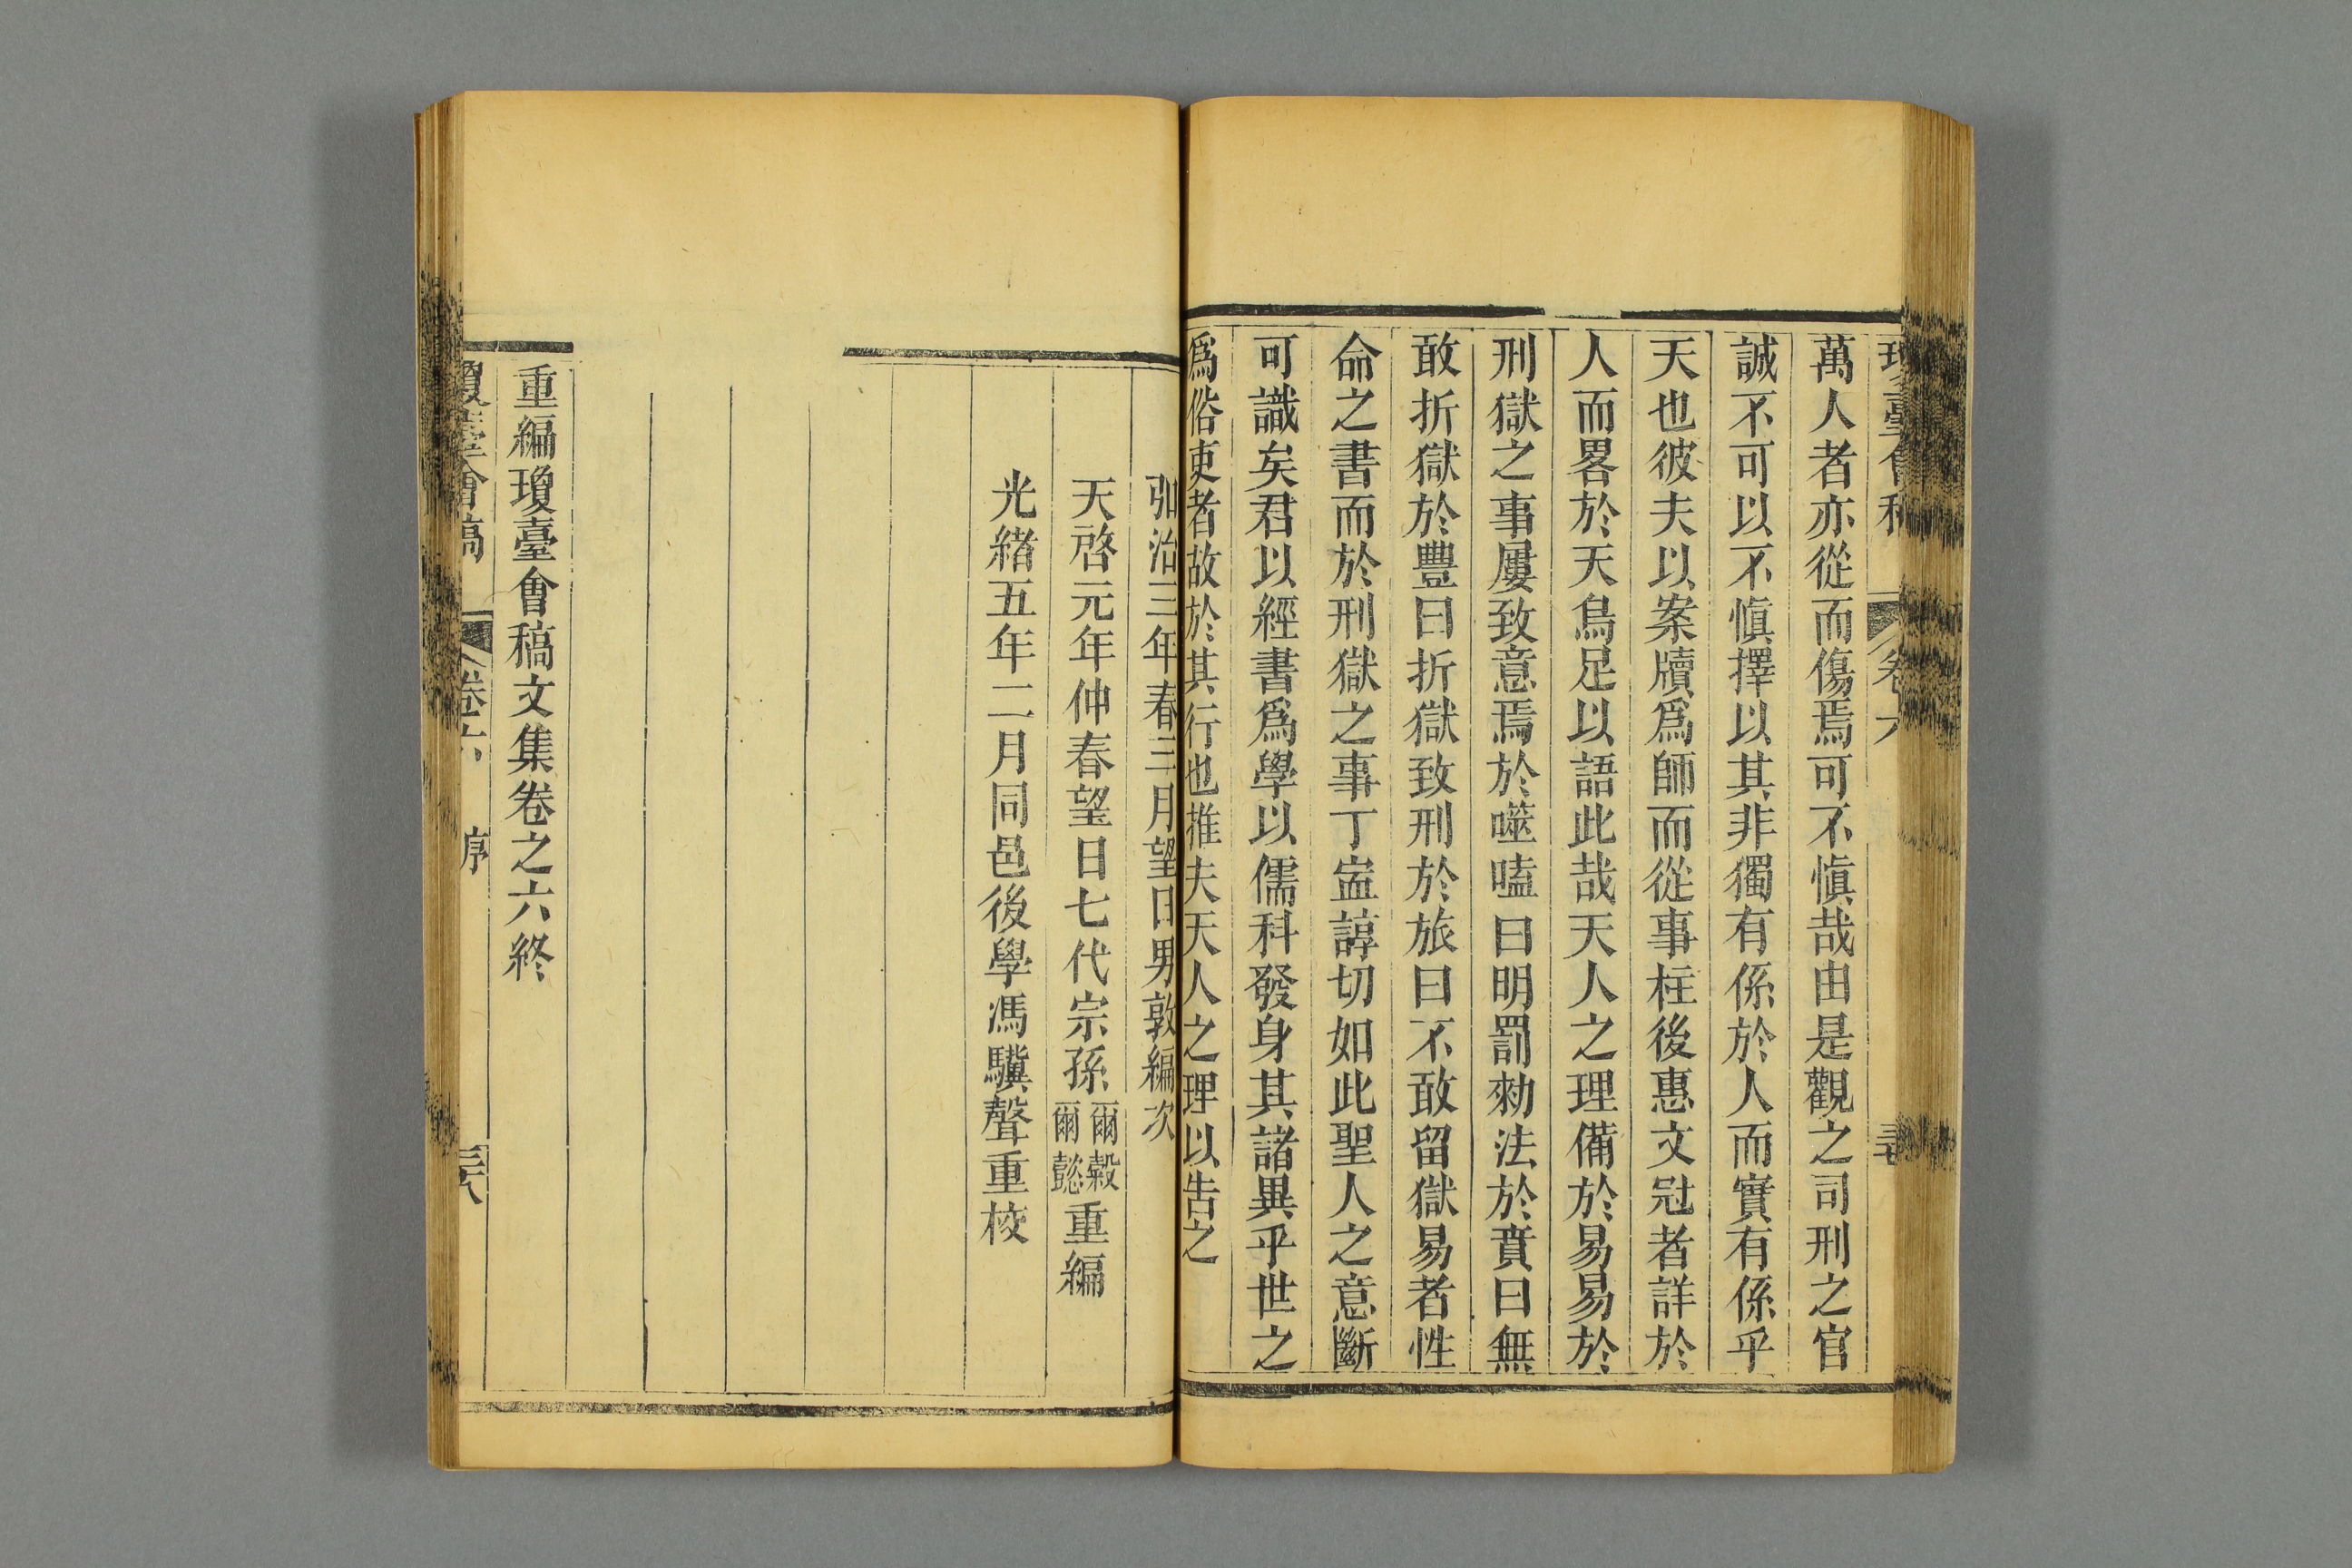 萬人者亦從而傷焉可不愼哉由是觀之司刑之官
誠不可以不愼擇以其非獨有係於人而實有係乎
天也彼夫以案牘爲師而從事柱後惠文冠者詳於
人而畧於天烏足以語此哉天人之理備於易易於
刑獄之事屢致意焉於噬嗑曰明罰勑法於賁曰無
敢折獄於豐曰折獄致刑於旅曰不敢留獄易者性
命之書而於刑獄之事丁寍諄切如此聖人之意斷
可識矣君以經書爲學以儒科發身其諸異乎世之
爲俗吏者故於其行也推夫天人之理以告之
弘治三年春三月望日男敦編次
天啓元年仲春望日七代宗孫爾穀爾懿重編
光緖五年二月同邑後學馮驥聲重校
重編瓊臺會稿文集卷之六終
瓊臺會稿 卷六 序 三六